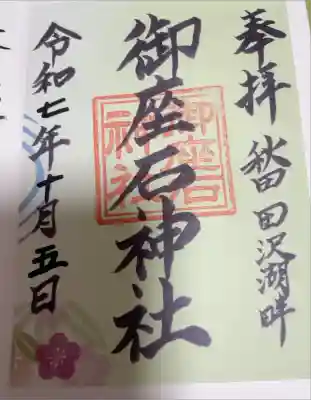 奉拝 秋田 田沢湖畔
御座石神社
御座石
神社
令和七年十月五日